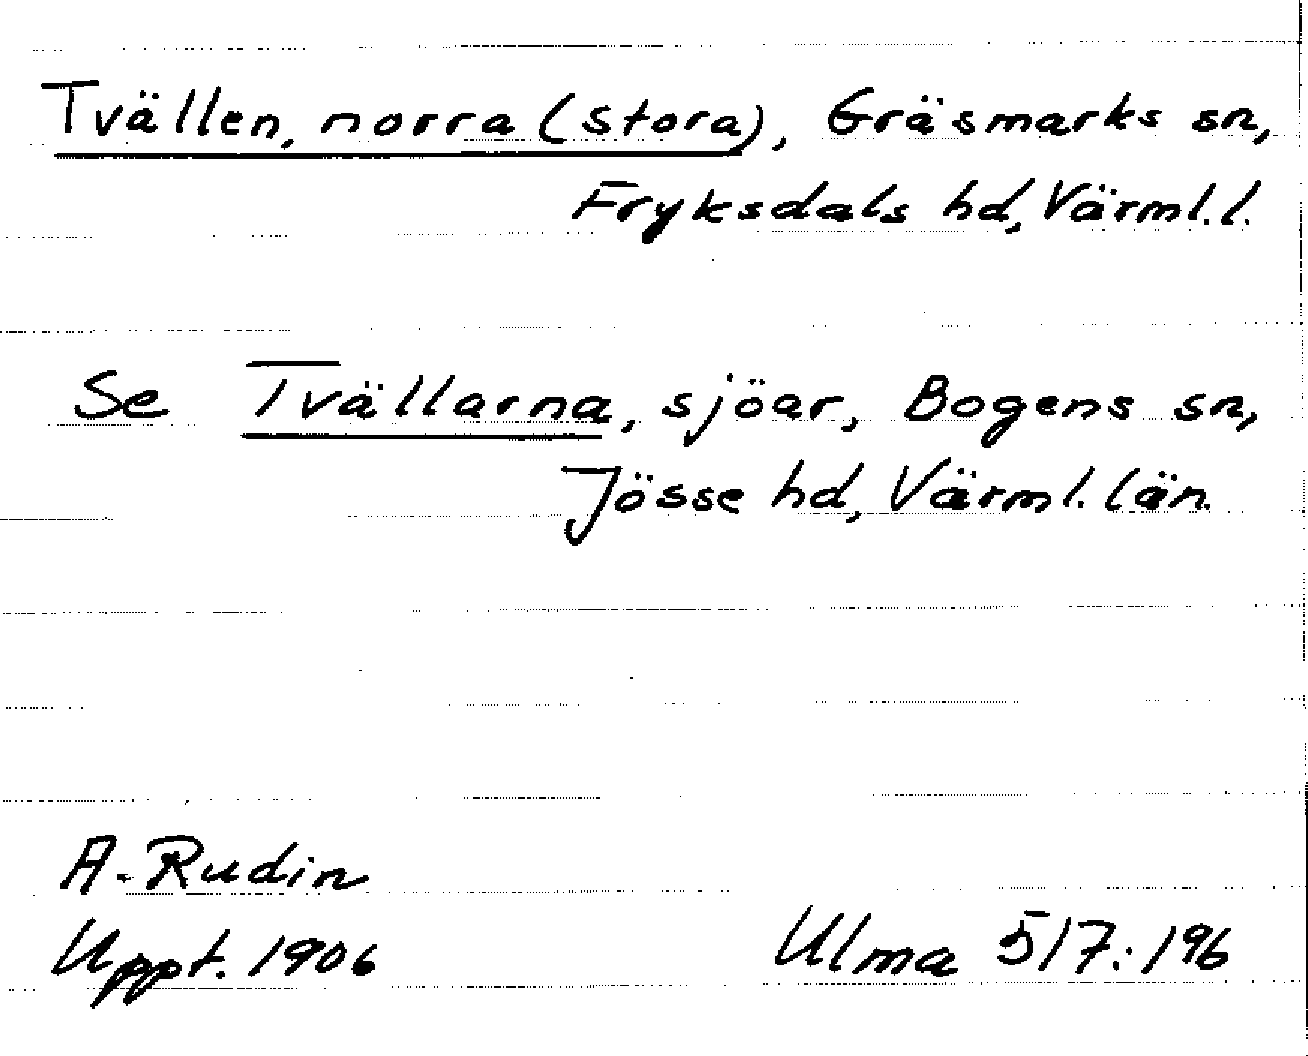 Tvällen, norra (stora), Gräsmarks sn,
Fryksdals hd, Värml. l.
Se Tvällarna, sjöar, Bogens sn,
Jösse hd, Värml. län.
A. Rudin
Uppt. 1906
Ulma 517:196